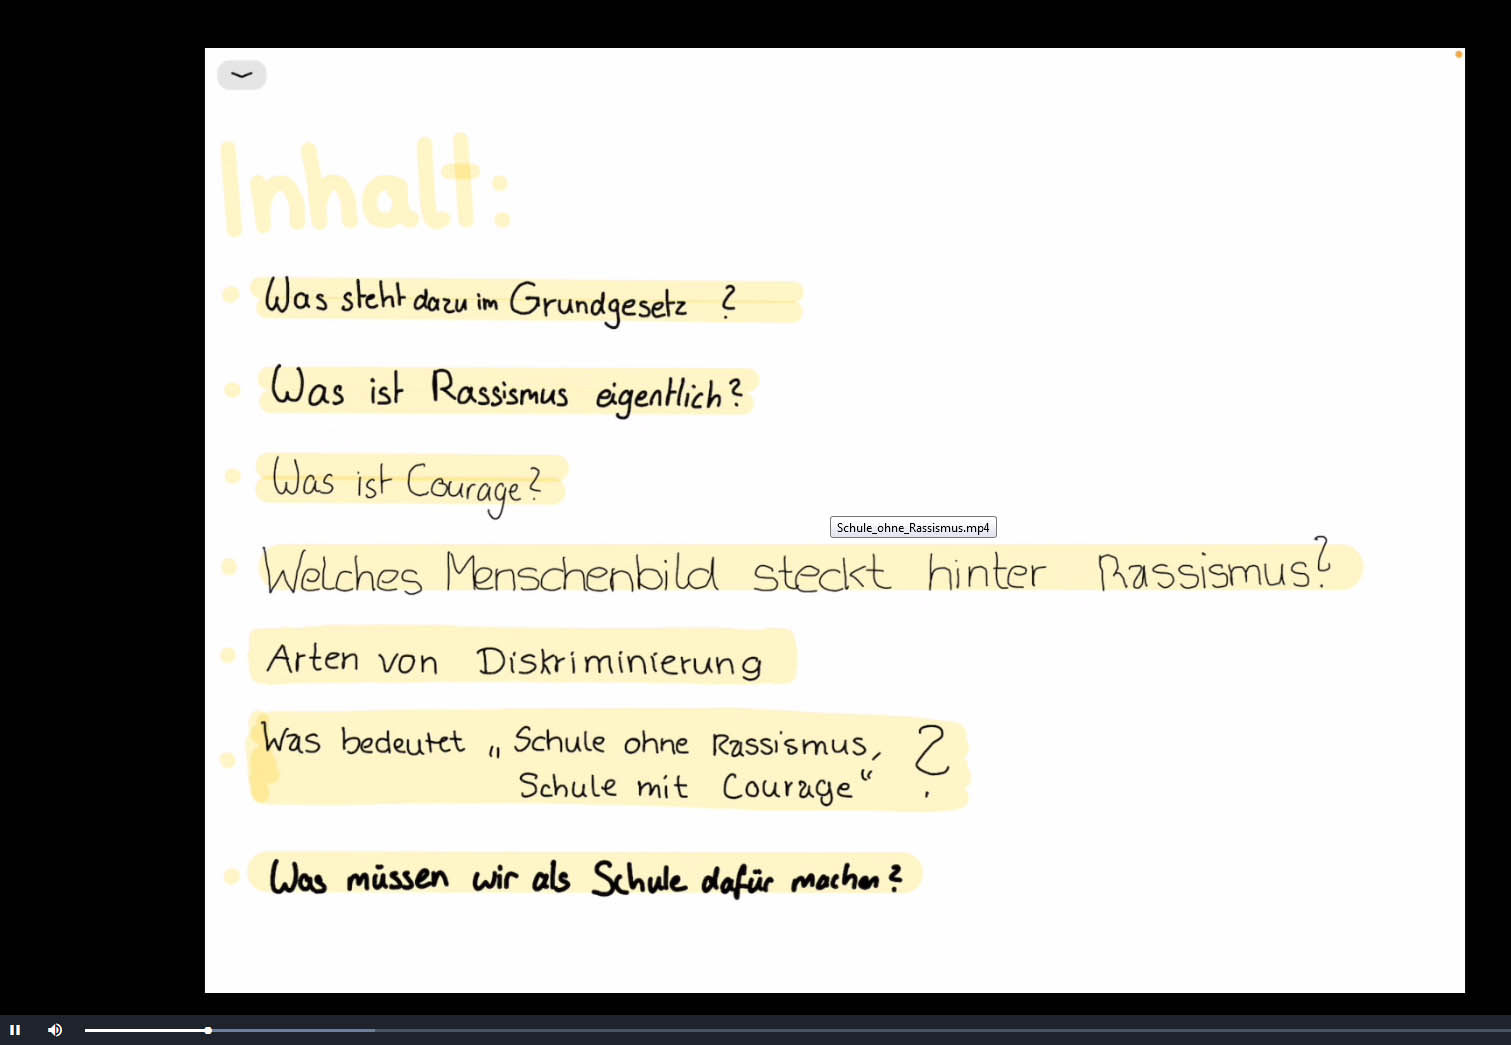 Inhalt:
Was steht dazu im Grundgesetz ?
Was ist Rassismus eigentlich?
Was ist Courage?
Schule_ohne_Rassismus.mp4
Welches Menschenbild steckt hinter Rassismus?
Arten von Diskriminierung
Was bedeutet „Schule ohne Rassismus, ?
Schule mit Courage“
Was müssen wir als Schule dafür machen?